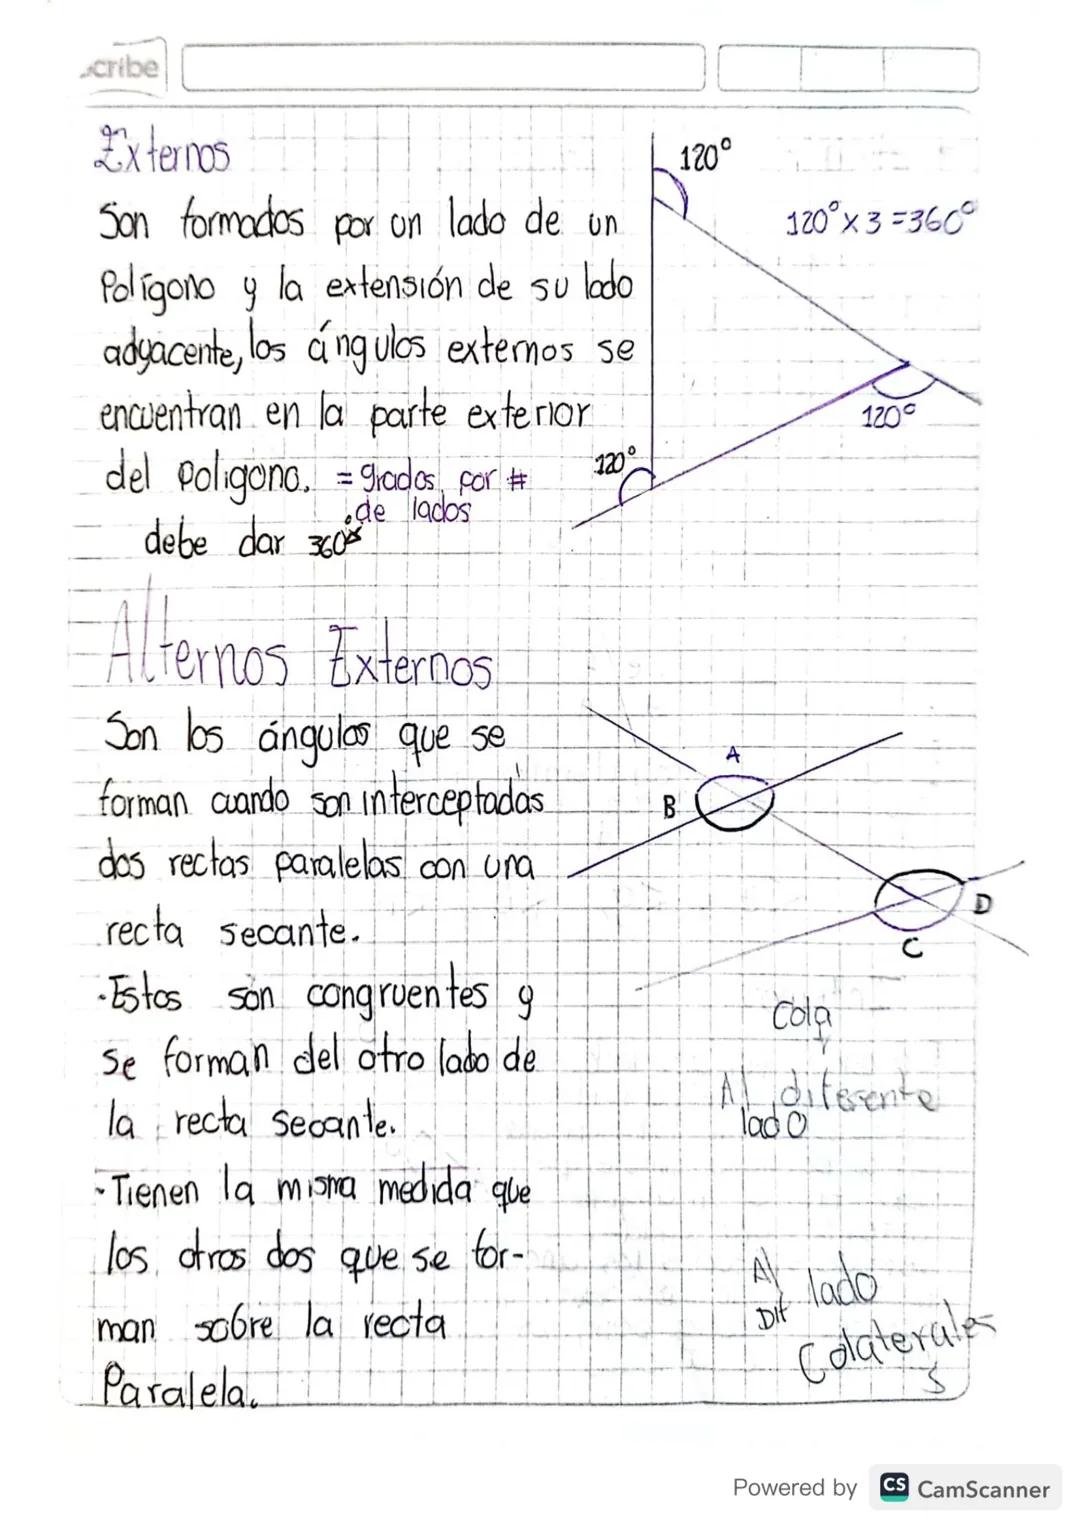 cribe
Externos
Son formados por un lado de un
Polígono y la extensión de su lado
adyacente, los ángulos externos se
encuentran en la parte exterior
del poligono. = grados por #
de lados
debe dar 360°
120°
120° x 3 = 360°
120°
120°
Alternos Externos
Son los ángulos que se
forman cuando son interceptadas
dos rectas paralelas con una
recta secante.
·Estos son congruentes y
se forman del otro lado de
la recta secante.
·Tienen la misma medida que
los otros dos que se for-
man sobre la recta
Paralela.
A
B
D
C
Cola
Al diferente
lado
Al lado
Dif
Colaterales
Powered by CS CamScanner